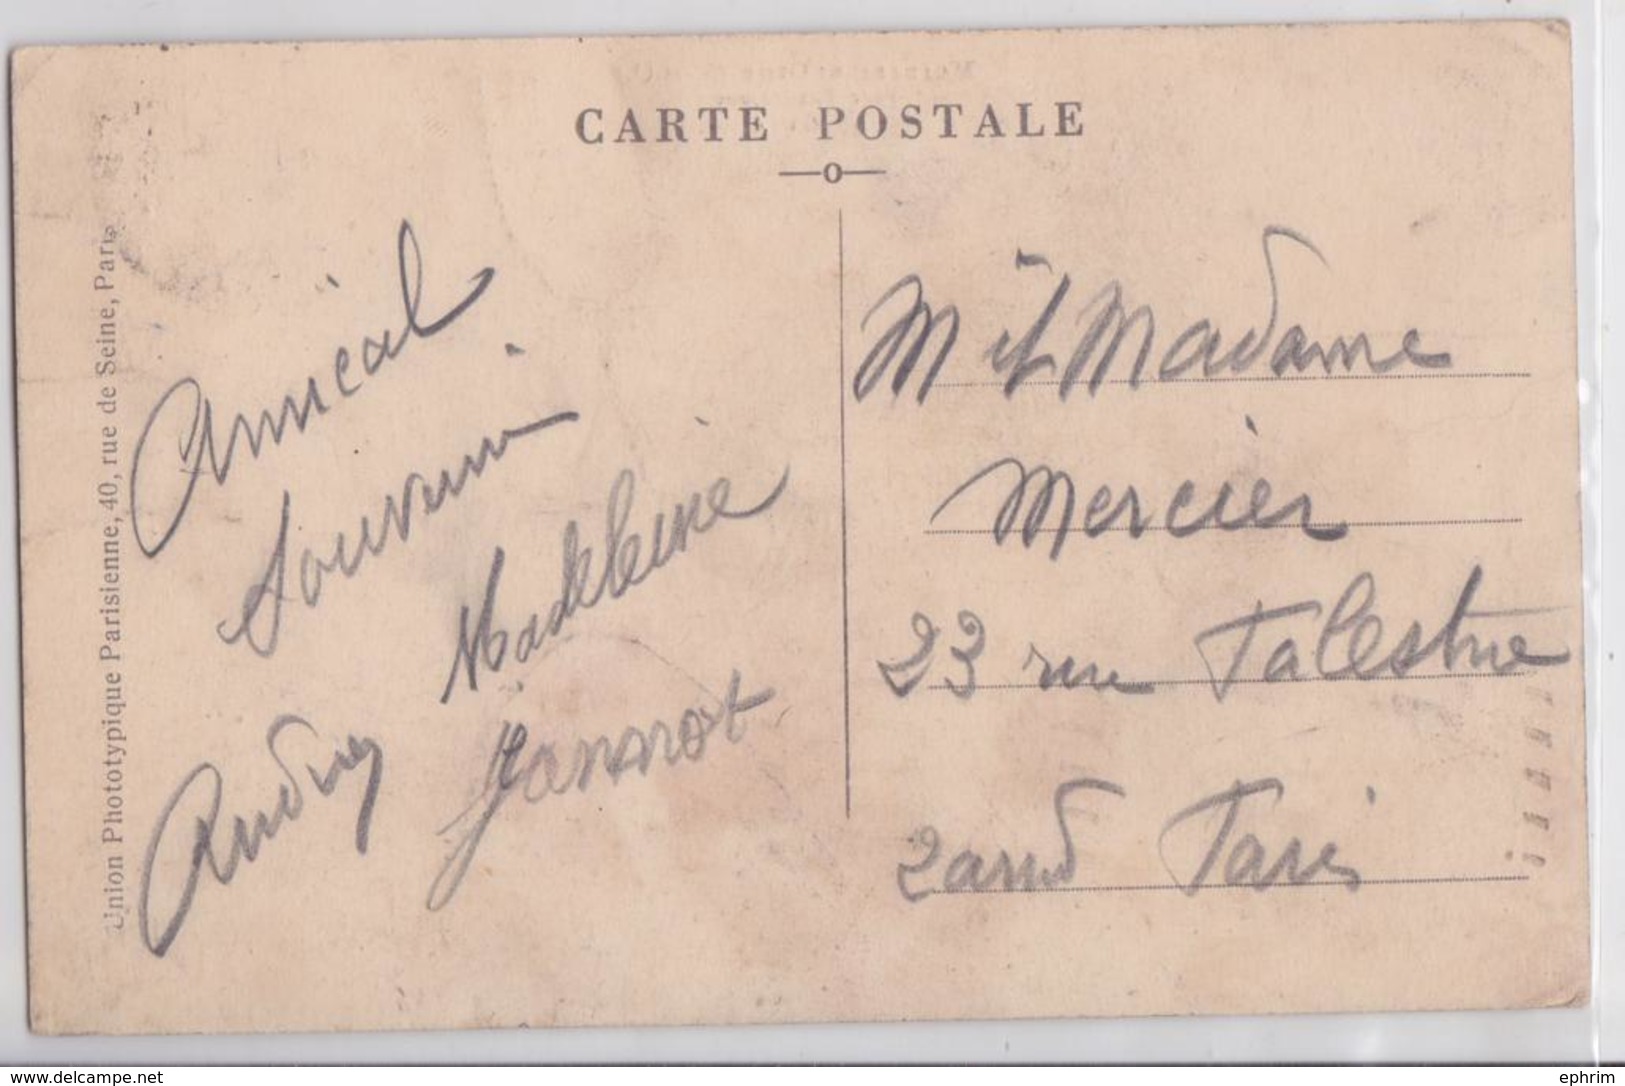 CARTE POSTALE
Union Phototypique Parisienne, 40, rue de Seine, Paris
Amical
Souvenir
Madeleine
Jannot
M et Madame
Mercier
23 rue Palestine
Paris
www.delcampe.net
ephrim